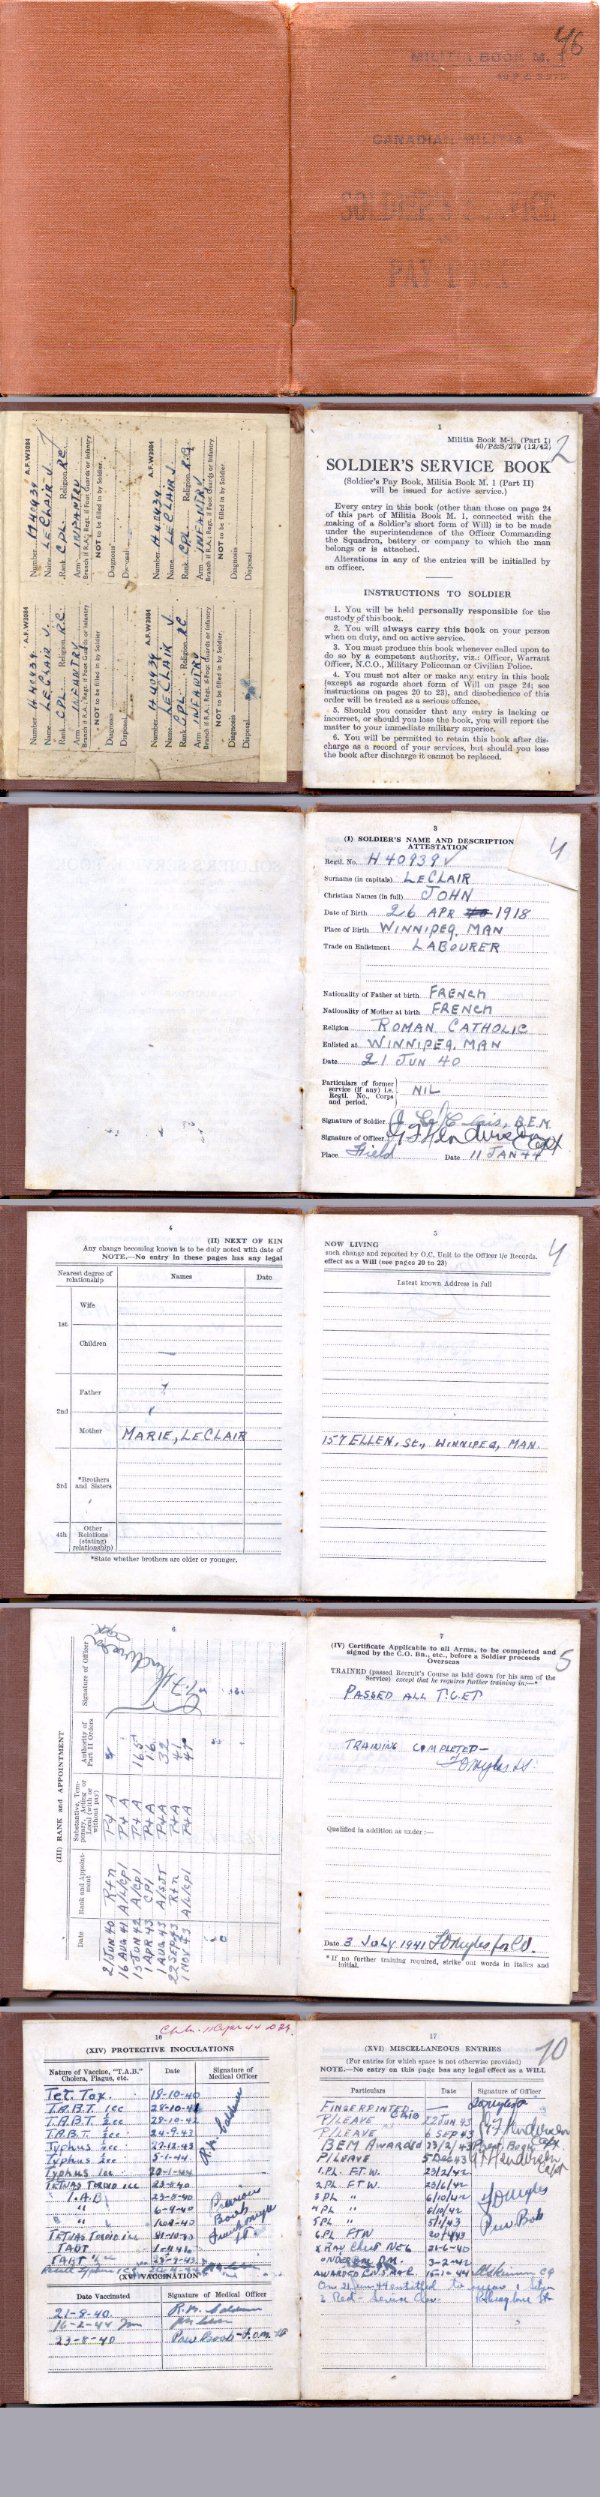 46
MILITIA BOOK M. 1
CANADIAN MILITIA
SOLDIER'S SERVICE
AND
PAY BOOK
A.F.W3084
Number H40939
Name LECLAIR J.
Rank CPL. Religion R.C.
Arm INFANTRY
Branch if R.A.; Regt. if Foot Guards or Infantry
NOT to be filled in by Soldier.
Diagnosis
Disposal
A.F.W3084
Number H40939
Name LECLAIR J.
Rank CPL. Religion R.C.
Arm INFANTRY
Branch if R.A.; Regt. if Foot Guards or Infantry
NOT to be filled in by Soldier.
Diagnosis
Disposal
A.F.W3084
Number H40939
Name LECLAIR J.
Rank CPL. Religion R.C.
Arm INFANTRY
Branch if R.A.; Regt. if Foot Guards or Infantry
NOT to be filled in by Soldier.
Diagnosis
Disposal
A.F.W3084
Number H40939
Name LECLAIR J.
Rank CPL. Religion RC
Arm INFANTRY
Branch if R.A.; Regt. if Foot Guards or Infantry
NOT to be filled in by Soldier.
Diagnosis
Disposal
1
2
Militia Book M-1. (Part I)
40/P&S/279 (12/42)
SOLDIER'S SERVICE BOOK
(Soldier's Pay Book, Militia Book M. 1 (Part II)
will be issued for active service.)
Every entry in this book (other than those on page 24
of this part of Militia Book M. 1, connected with the
making of a Soldier's short form of Will) is to be made
under the superintendence of the Officer Commanding
the Squadron, battery or company to which the man
belongs or is attached.
Alterations in any of the entries will be initialled by
an officer.
INSTRUCTIONS TO SOLDIER
1. You will be held personally responsible for the
custody of this book.
2. You will always carry this book on your person
when on duty, and on active service.
3. You must produce this book whenever called upon to
do so by a competent authority, viz.: Officer, Warrant
Officer, N.C.O., Military Policeman or Civilian Police.
4. You must not alter or make any entry in this book
(except as regards short form of Will on page 24; see
instructions on pages 20 to 23), and disobedience of this
order will be treated as a serious offence.
5. Should you consider that any entry is lacking or
incorrect, or should you lose the book, you will report the
matter to your immediate military superior.
6. You will be permitted to retain this book after dis-
charge as a record of your services, but should you lose
the book after discharge it cannot be replaced.
3
4
(I) SOLDIER'S NAME AND DESCRIPTION
ATTESTATION
Regtl. No. H 40939
Surname (in capitals) LECLAIR
Christian Names (in full) JOHN
Date of Birth 26 APR 1918
Place of Birth WINNIPEG, MAN
Trade on Enlistment LABOURER
Nationality of Father at birth FRENCH
Nationality of Mother at birth FRENCH
Religion ROMAN CATHOLIC
Enlisted at WINNIPEG, MAN
Date 21 JUN 40
Particulars of former
service (if any) i.e.
Regtl. No., Corps
and period.
NIL
Signature of Soldier B.E.M.
Signature of Officer Capt
Place Field Date 11 JAN 44
4
(II) NEXT OF KIN
Any change becoming known is to be duly noted with date of
NOTE.—No entry in these pages has any legal
Nearest degree of relationship Names Date
1st Wife
Children
2nd Father
Mother MARIE, LECLAIR
3rd *Brothers and Sisters
4th Other Relations (stating relationship)
*State whether brothers are older or younger.
5
4
NOW LIVING
such change and reported by O.C. Unit to the Officer i/c Records.
effect as a Will (see pages 20 to 23)
Latest known Address in full
157 ELLEN, ST., WINNIPEG, MAN.
6
(III) RANK and APPOINTMENT
Date
Rank and Appointment
Substantive, Temporary, Acting or Local (with or without pay)
Authority of Part II Orders
Signature of Officer
21 JUN 40 Rtn P+A
16 AUG 41 A/L/Cpl P+A
15 JUN 42 A/Cpl P+A 165
1 APR 43 Cpl P+A 16
1 AUG 43 A/Sjt P+A 32
22 SEP 43 Rtn P+A 41
1 NOV 43 A/L/Cpl P+A
7
5
(IV) Certificate Applicable to all Arms, to be completed and
signed by the C.O. Bn., etc., before a Soldier proceeds
Overseas
TRAINED (passed Recruit's Course as laid down for his arm of the
Service) except that he requires further training in:—*
PASSED ALL T.O.E.T
TRAINING COMPLETED—
Qualified in addition as under:—
Date 3 JULY 1941
*If no further training required, strike out words in italics and
initial.
16
(XIV) PROTECTIVE INOCULATIONS
Nature of Vaccine, "T.A.B." Cholera, Plague, etc. Date Signature of Medical Officer
Tet. Tox. 18-10-40
T.A.B.T 1cc 28-10-41
T.A.B.T. ½cc 28-10-42
T.A.B.T. ½cc 24-9-43
Typhus 1cc 27-12-43
Typhus 1cc 5-1-44
Typhus 1cc
TETNAS TOXOID 1cc
T.A.B.
Previous
Book
TETNAS TOXOID 1cc
TABT
TABT
(XV) VACCINATION
Date Vaccinated Signature of Medical Officer
21-8-40
16-2-44
23-8-40 Paw Book
17
10
(XVI) MISCELLANEOUS ENTRIES
(For entries for which space is not otherwise provided)
NOTE.—No entry on this page has any legal effect as a WILL
Particulars Date Signature of Officer
FINGERPRINTED —
P/LEAVE 22 JUN 43
P/LEAVE 6 SEP 43
BEM AWARDED 23/2/43
P/LEAVE 5 DEC 43
1. PL. F.T.W. 23/2/42
2 PL. F.T.W. 23/6/42
3 PL " 6/10/42
4 PL " 6/10/42
5 PL " 5/1/43
6. PL FTW 20/4/43
X RAY Chest NEG 21-6-40
3-2-42
AWARDED C.V.S.M. 15-1-44